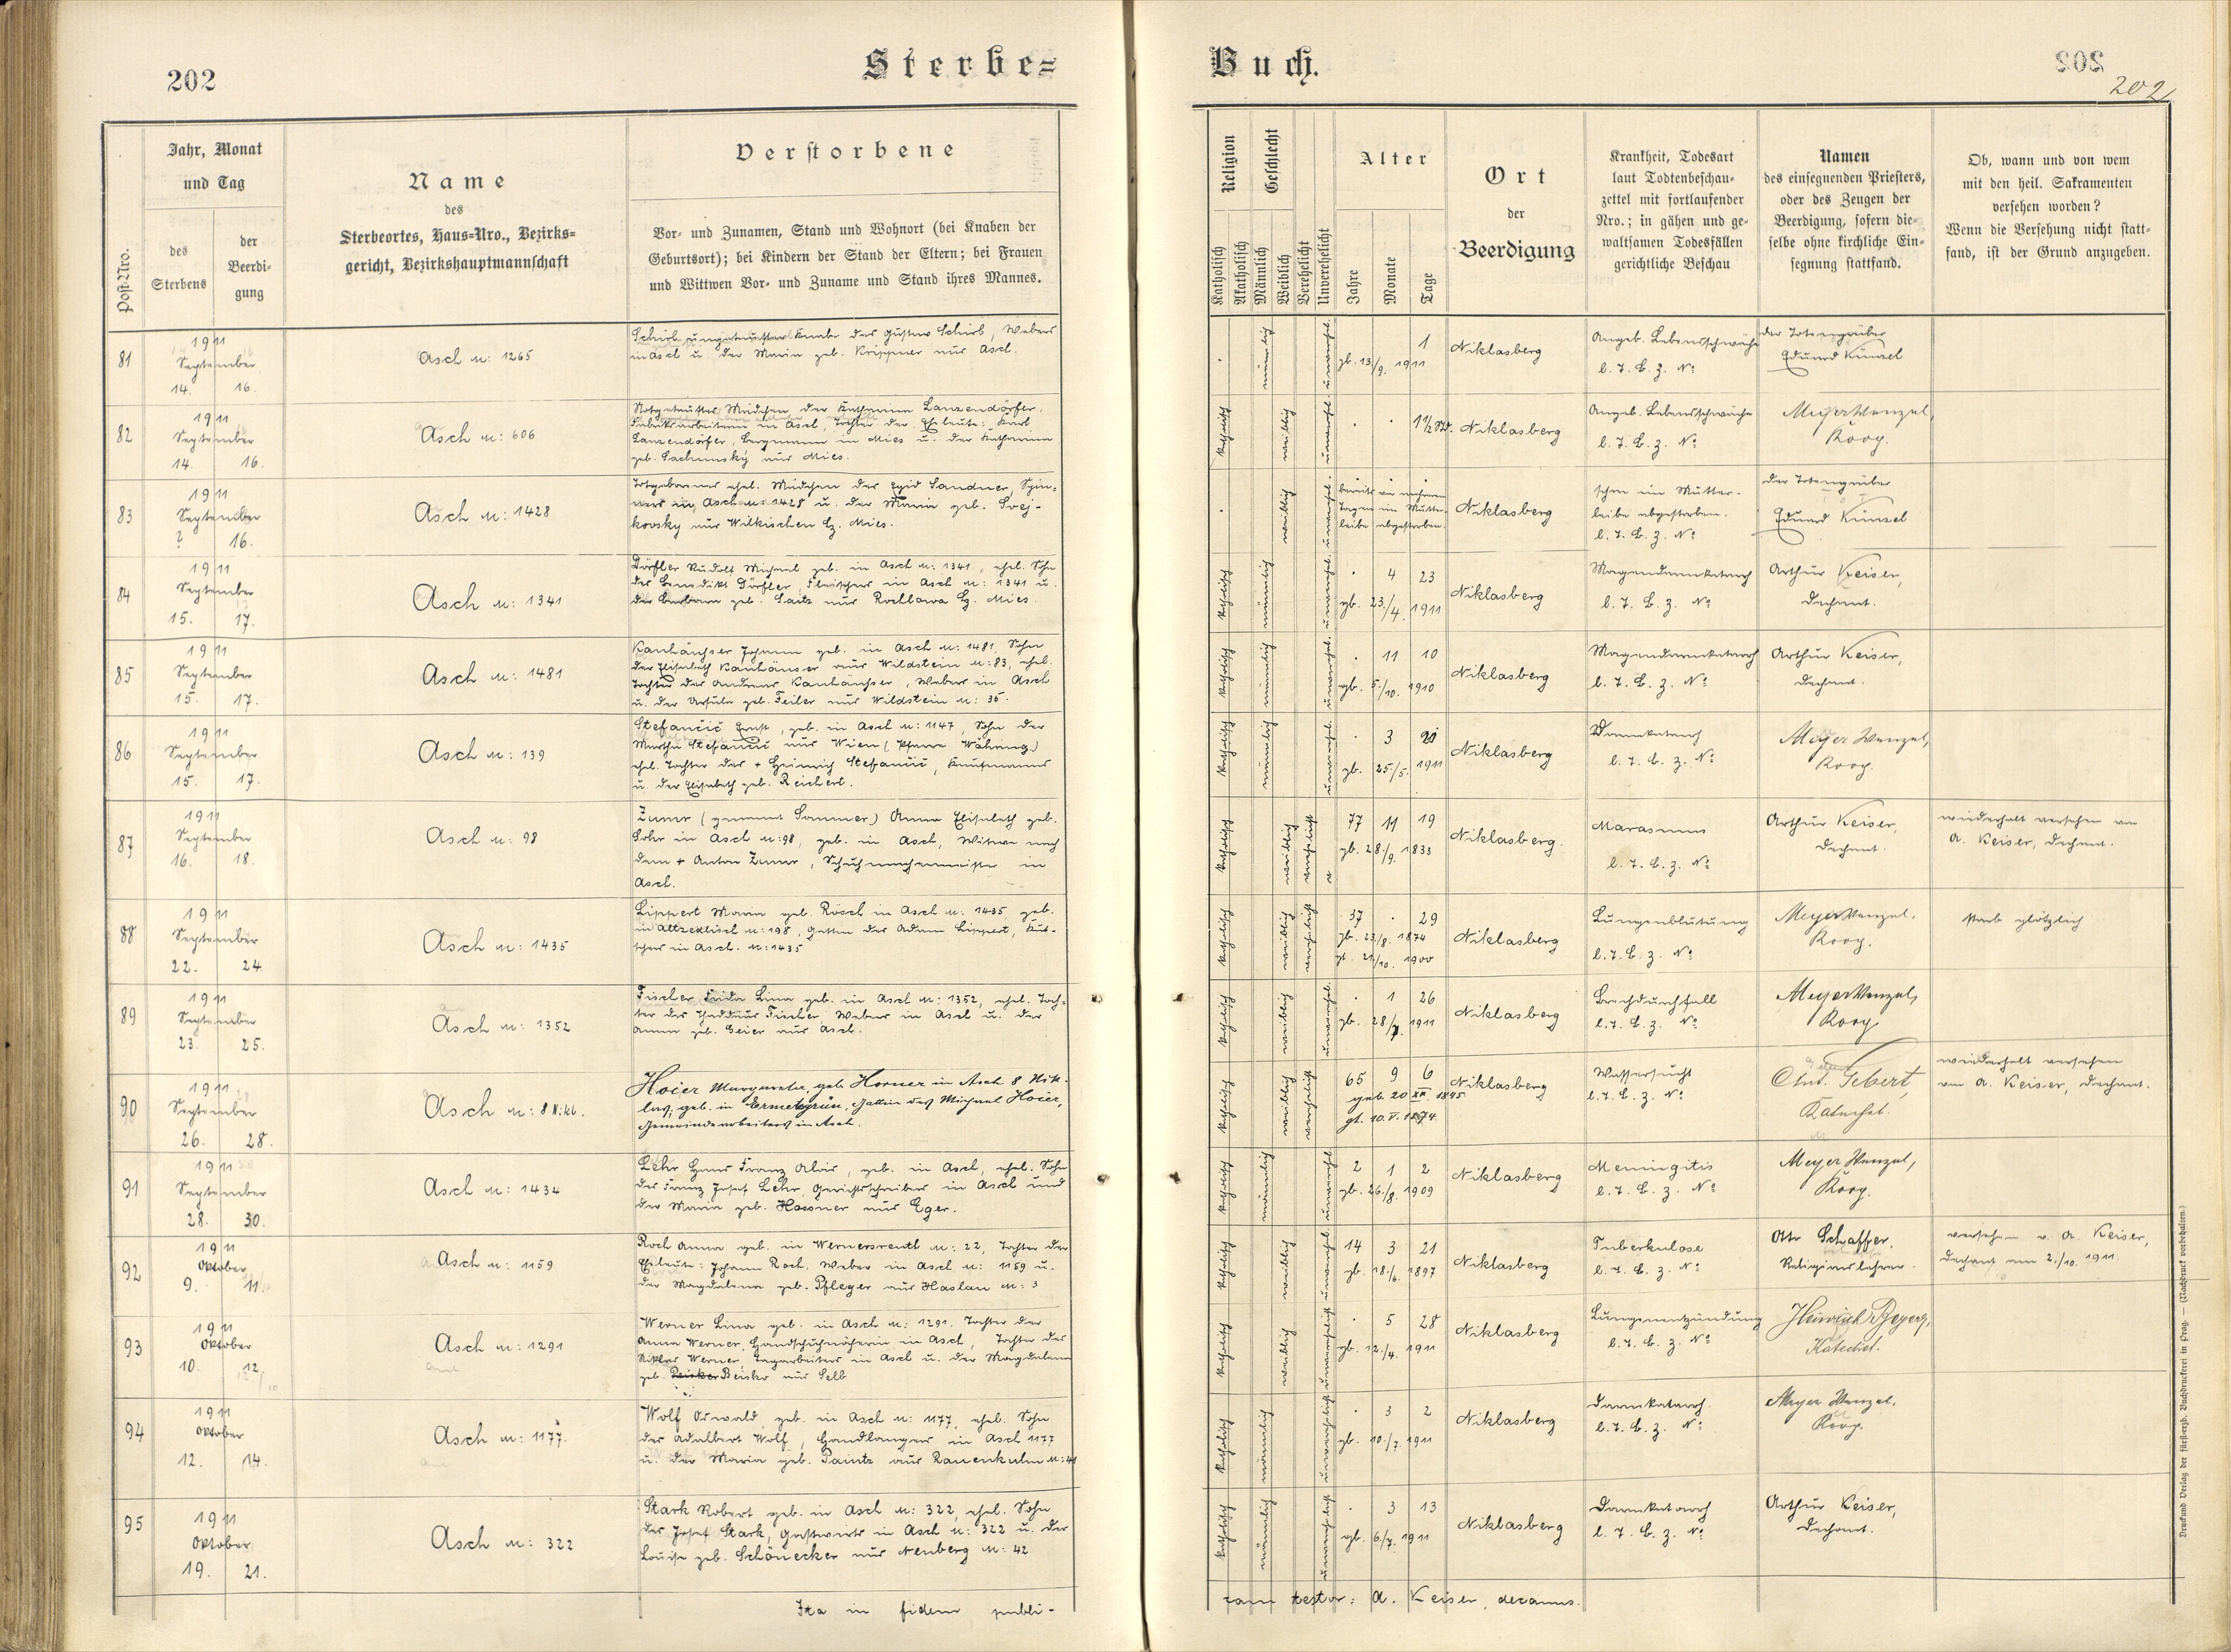 202
Sterbe=
Jahr, Monat
und Tag
Name
des
Sterbeortes, Haus=Nro., Bezirks=
gericht, Bezirkshauptmannschaft
Verstorbene
Vor= und Zunamen, Stand und Wohnort (bei Knaben der
Geburtsort); bei Kindern der Stand der Eltern; bei Frauen
und Wittwen Vor= und Zuname und Stand ihres Mannes.
Post=Nro.
des
Sterbens
der
Beerdi=
gung
81
1911
September
14. 16.
Asch N: 1265
Schirl ungetaufter Knabe des Gustav Schirl, Webers
in Asch u. der Maria geb. Krippner aus Asch.
82
1911
September
14. 16.
Asch N: 606
Notgetauftes Mädchen der Katharina Lanzendörfer,
Fabriksarbeiterin in Asch, Tochter der Eheleute: Karl
Lanzendörfer, Bergmann in Mies u. der Katharina
geb. aus Mies.
83
1911
September
? 16.
Asch N: 1428
Totgeborenes ehel. Mädchen des Egid Sandner, Spin-
ners in Asch N: 1428 u. der Maria geb. Svej-
kovsky aus Wilkischen Bz. Mies.
84
1911
September
15. 17.
Asch N: 1341
Dörfler Rudolf Michael geb. in Asch N: 1341, ehel. Sohn
des Benedikt Dörfler, Fleischers in Asch N: 1341 u.
der Barbara geb. Saitz aus Rochlawa Bz. Mies.
85
1911
September
15. 17.
Asch N: 1481
Kanhäuser Johann geb. in Asch N: 1481, Sohn
der Elisabeth Kanhäuser aus Wildstein N: 83, ehel.
Tochter des Andreas Kanhäuser, Weber in Asch
u. der Ursula geb. Feiler aus Wildstein N: 35.
86
1911
September
15. 17.
Asch N: 139
Stefančič Ernst, geb. in Asch N: 1147, Sohn der
Martha Stefančič aus Wien (Pfarre Währing)
ehel. Tochter des + Heinrich Stefančič, Kaufmanns
u. der Elisabeth geb. Reichert.
87
1911
September
16. 18.
Asch N: 98
Zumr (genannt Sommer) Anna Elisabeth geb.
Lohr in Asch N: 98, geb. in Asch, Witwe nach
dem + Anton Zumr, Schuhmachermeister in
Asch.
88
1911
September
22. 24.
Asch N: 1435
Lippert Maria geb. Rösch in Asch N: 1435, geb.
in Altzedlisch N: 198, Gattin des Adam Lippert, Kut-
schers in Asch. N: 1435
89
1911
September
23. 25.
Asch N: 1352
Fischer Frida Lina geb. in Asch N: 1352, ehel. Toch-
ter des Thaddäus Fischer, Weber in Asch u. der
Anna geb. Geier aus Asch.
90
1911
September
26. 28.
Asch N: 8 Nikl.
Hoier Margareta, geb. Horner in Asch 8 Nik-
las, geb. in Ermetsgrün, Gattin des Michael Hoier,
Gemeindearbeiters in Asch.
91
1911
September
28. 30.
Asch N: 1434
Lehr Hans Franz Alois, geb. in Asch, ehel. Sohn
des Franz Josef Lehr, Gerichtsschreibers in Asch und
der Maria geb. Hassner aus Eger.
92
1911
Oktober
9. 11.
Asch N: 1159
Roch Anna geb. in Wernersreuth N: 22, Tochter der
Eheleute: Johann Roch, Weber in Asch N: 1159 u.
der Magdalena geb. Pfleger aus Haslau N: 3
93
1911
Oktober
10. 12.
Asch N: 1291
Werner Lina geb. in Asch N: 1291. Tochter der
Anna Werner, Handschuhnäherin in Asch, Tochter des
Niklas Werner, Tagarbeiters in Asch u. der Magdalena
geb. Beisker aus Selb
94
1911
Oktober
12. 14.
Asch N: 1177.
Wolf Oswald geb. in Asch N: 1177, ehel. Sohn
des Adalbert Wolf, Handlangers in Asch 1177
u. der Maria geb. Paintz aus Rauenkulm N: 41
95
1911
Oktober
19. 21.
Asch N: 322
Stark Robert geb. in Asch N: 322, ehel. Sohn
des Josef Stark, Gastwirts in Asch N: 322 u. der
Louise geb. Schönecker aus Neuberg N: 42
Ita in fidem publi-
Buch.
202
Religion
Geschlecht
Alter
Ort
der
Beerdigung
Krankheit, Todesart
laut Todtenbeschau=
zettel mit fortlaufender
Nro.; in gähen und ge=
waltsamen Todesfällen
gerichtliche Beschau
Namen
des einsegnenden Priesters,
oder des Zeugen der
Beerdigung, sofern die=
selbe ohne kirchliche Ein=
segnung stattfand.
Ob, wann und von wem
mit den heil. Sakramenten
versehen worden?
Wenn die Versehung nicht statt=
fand, ist der Grund anzugeben.
Katholisch
Akatholisch
Männlich
Weiblich
Verehelicht
Unverehelicht
Jahre
Monate
Tage
männlich unverehel. 1
gb. 13/9. 1911
Niklasberg
Angeb. Lebensschwäche
l. T. B. z. No
der Totengräber
Eduard Künzel
katholisch weiblich unverehel. . . 1 1/2 St.
Niklasberg
Angeb. Lebensschwäche
l. T. B. z. No
Meyer Wenzel,
Koop.
weiblich unverehel.
bereits vor mehreren
Tagen im Mutter-
leibe abgestorben.
Niklasberg
schon im Mutter-
leibe abgestorben.
l. T. B. z. No
der Totengräber
Eduard Künzel
katholisch männlich unverehel. . 4 23
gb. 23./4. 1911
Niklasberg
Magendarmkatarrh
l. T. B. z. No
Arthur Keiser,
Dechant.
katholisch männlich unverehel. . 11 10
gb. 5./10. 1910
Niklasberg
Magendarmkatarrh
l. T. B. z. No
Arthur Keiser,
Dechant.
katholisch männlich unverehel. . 3 21
gb. 25./5. 1911
Niklasberg
Darmkatarrh
l. T. B. z. No
Meyer Wenzel,
Koop.
katholisch weiblich verehelicht 77 11 19
gb. 28./9. 1833
Niklasberg.
Marasmus
l. T. B. z. No
Arthur Keiser,
Dechant.
wiederholt versehen von
A. Keiser, Dechant.
katholisch weiblich verehelicht 37 . 29
gb. 23/8. 1874
gt. 21/10. 1900
Niklasberg
Lungenblutung
l. T. B. z. No
Meyer Wenzel,
Koop.
starb plötzlich
katholisch weiblich unverehel. . 1 26
gb. 28/7. 1911
Niklasberg
Brechdurchfall
l. T. B. z. No
Meyer Wenzel,
Koop.
katholisch weiblich verehelicht 65 9 6
geb. 20 XII. 1845
gt. 10. V. 1874.
Niklasberg
Wassersucht
l. T. B. z. No
Ant. Gebert,
Katechet.
wiederholt versehen
von A. Keiser, Dechant.
katholisch männlich unverehel. 2 1 2
gb. 26./8. 1909
Niklasberg
Meningitis
l. T. B. z. No
Meyer Wenzel,
Koop.
katholisch weiblich unverehel. 14 3 21
gb. 18./6. 1897
Niklasberg
Tuberkulose
l. T. B. z. No
Otto Schaffer,
Religionslehrer.
versehen v. A. Keiser,
Dechant am 2./10. 1911.
katholisch weiblich unverehelicht . 5 28
gb. 12./4. 1911
Niklasberg
Lungenentzündung
l. T. B. z. No
Katechet.
katholisch männlich unverehelicht . 3 2
gb. 10./7. 1911
Niklasberg
Darmkatarrh.
l. T. B. z. No
Meyer Wenzel,
Koop.
katholisch männlich unverehelicht . 3 13
gb. 6/7. 1911
Niklasberg
Darmkatarrh
l. T. B. z. No
Arthur Keiser,
Dechant.
cam testor: A. Keiser, decanus.
Druck und Verlag der fürsterzb. Buchdruckerei in Prag. — (Nachdruck vorbehalten.)